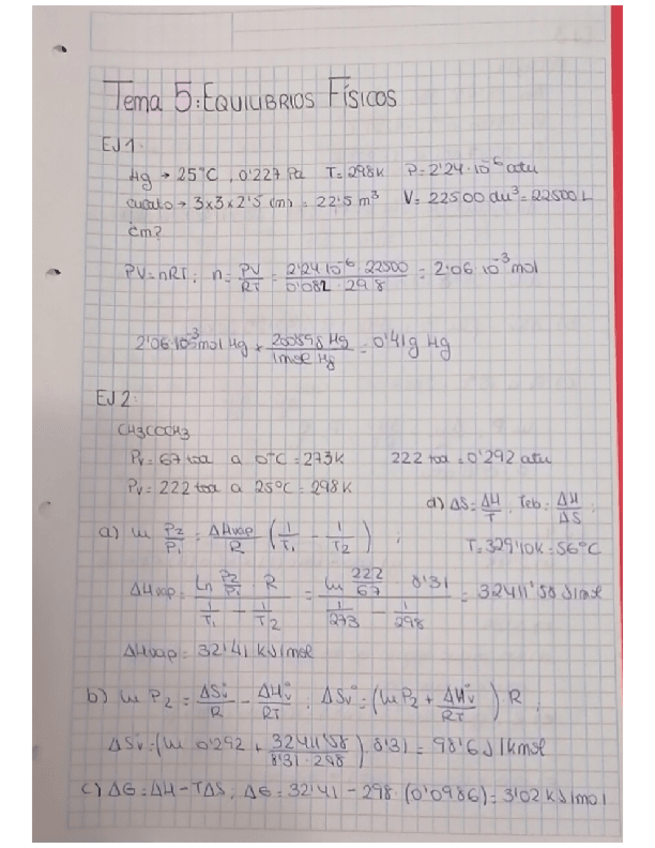 Tema 5: EQUILIBRIOS FÍSICOS
EJ 1.
Hg → 25°C, 0'227 Pa T= 298K P= 2'24·10⁻⁶ atm
cuarto → 3x3x2'5 (m) = 22'5 m³ V= 22500 dm³ = 22500 L
¿m?
PV=nRT; n= PV/RT = 2'24·10⁻⁶·22500/0'082·298 = 2'06·10⁻³ mol
2'06·10⁻³ mol Hg × 200'59g Hg/1mol Hg = 0'41g Hg
EJ 2:
CH3COCH3
Pv= 67 torr a 0°C = 273K 222 torr = 0'292 atm
Pv= 222 torr a 25°C = 298K
d) ΔS= ΔH/T, Teb= ΔH/ΔS;
a) ln P2/P1 = ΔHvap/R (1/T1 - 1/T2); T= 329'10K = 56°C
ΔHvap= Ln P2/P1 · R / (1/T1 - 1/T2) = ln 222/67 · 8'31 / (1/273 - 1/298) = 32411'58 J/mol
ΔHvap= 32'41 kJ/mol
b) ln P2 = ΔSv°/R - ΔHv°/RT; ΔSv°= (ln P2 + ΔHv°/RT) R;
ΔSv=(ln 0'292 + 32411'58/8'31·298) 8'31 = 98'6 J/kmol
c) ΔG=ΔH-TΔS; ΔG= 32'41 - 298·(0'0986)= 3'02 kJ/mol